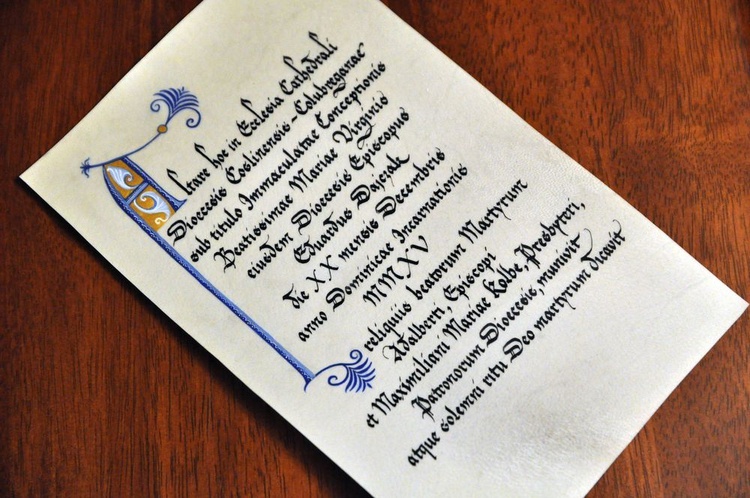 Altare hoc in Eclesia Cathedrali
Dioecesis Coslinensis-Colubreganae
sub titulo Immaculatae Conceptionis
Beatissimae Mariae Virginis
eiusdem Dioecesis Episcopus
Eduardus Dajczak
die XX mensis Decembris
anno Dominicae Incarnationis
MMXV
reliquiis beatorum Martyrum
Adalberti, Episcopi
et Maximiliani Mariae Kolbe, Presbyteri,
Patronorum Dioecesis, munivit
atque solemni ritu Deo martyrum dicavit